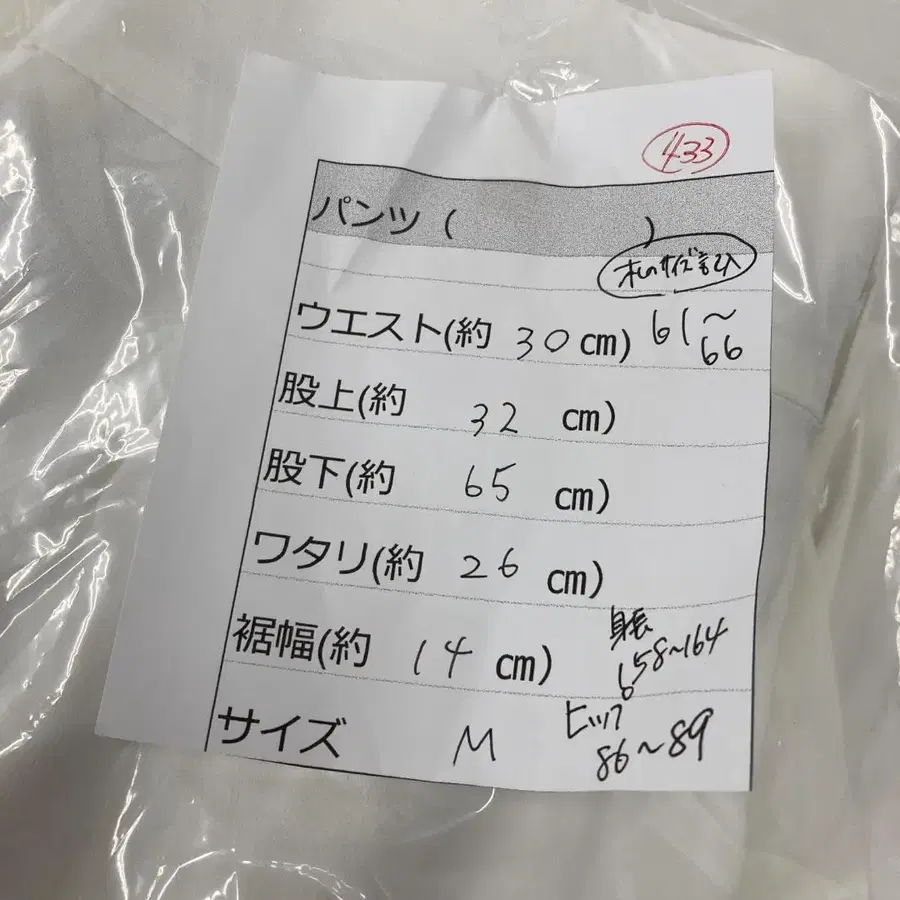 433
パンツ ( )
木しのサイズ記入
ウエスト(約 30 cm) 61～66
股上(約 32 cm)
股下(約 65 cm)
ワタリ(約 26 cm)
裾幅(約 14 cm)
身長 158～164
サイズ M
ヒップ 86～89